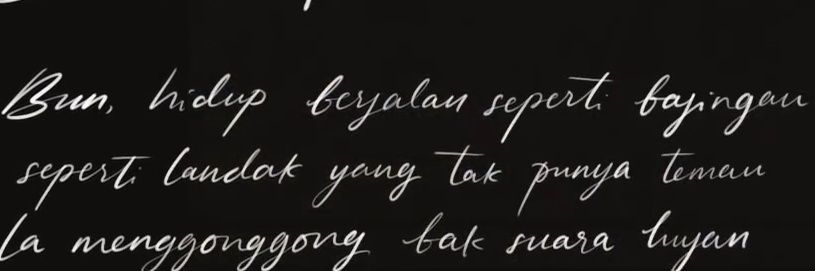 Bun, hidup berjalan seperti bajingan
seperti landak yang tak punya teman
Ia menggonggong bak suara hujan